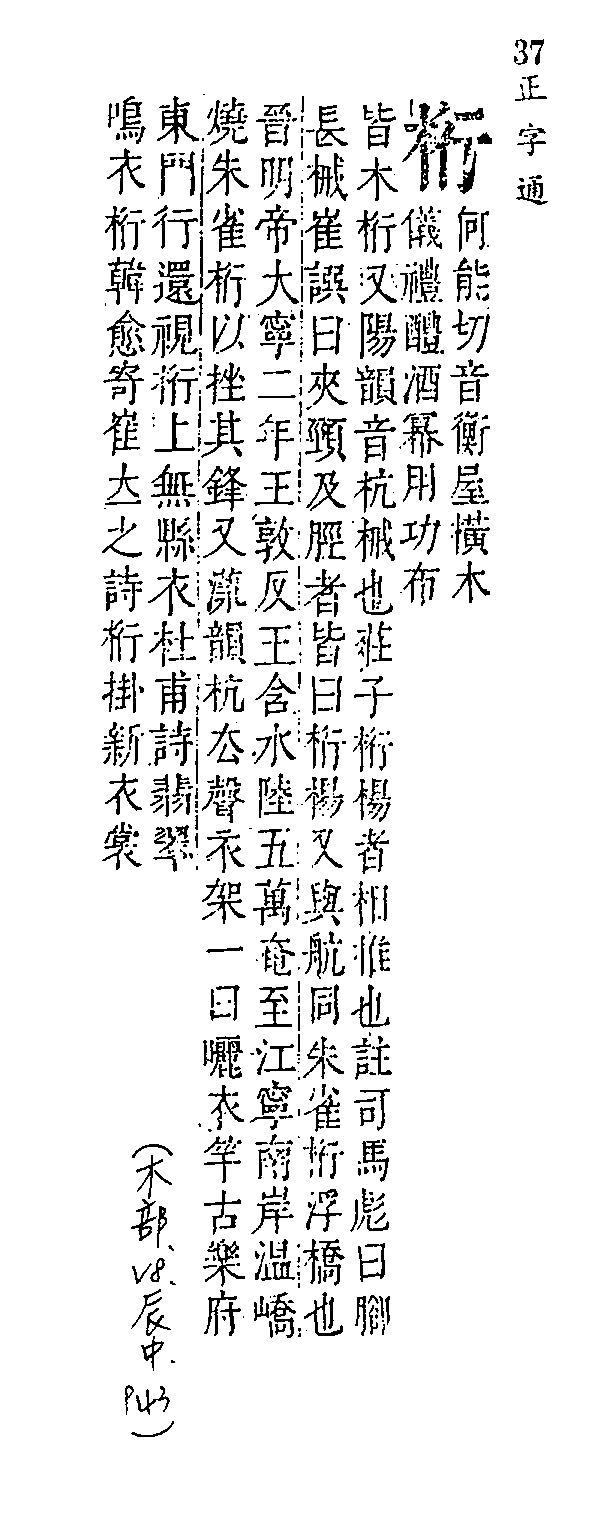 37 正字通
桁
何能切音衡屋橫木
儀禮醴酒冪用功布
皆木桁又陽韻音杭械也莊子桁楊者相推也註司馬彪曰腳
長械崔譔曰夾頸及脛者皆曰桁楊又與航同朱雀桁浮橋也
晉明帝大寧二年王敦反王含水陸五萬奄至江寧南岸溫嶠
燒朱雀桁以挫其鋒又漾韻杭去聲衣架一曰曬衣竿古樂府
東門行還視桁上無縣衣杜甫詩翡翠
鳴衣桁韓愈寄崔立之詩桁掛新衣裳
(木部、V8.辰中.P43)